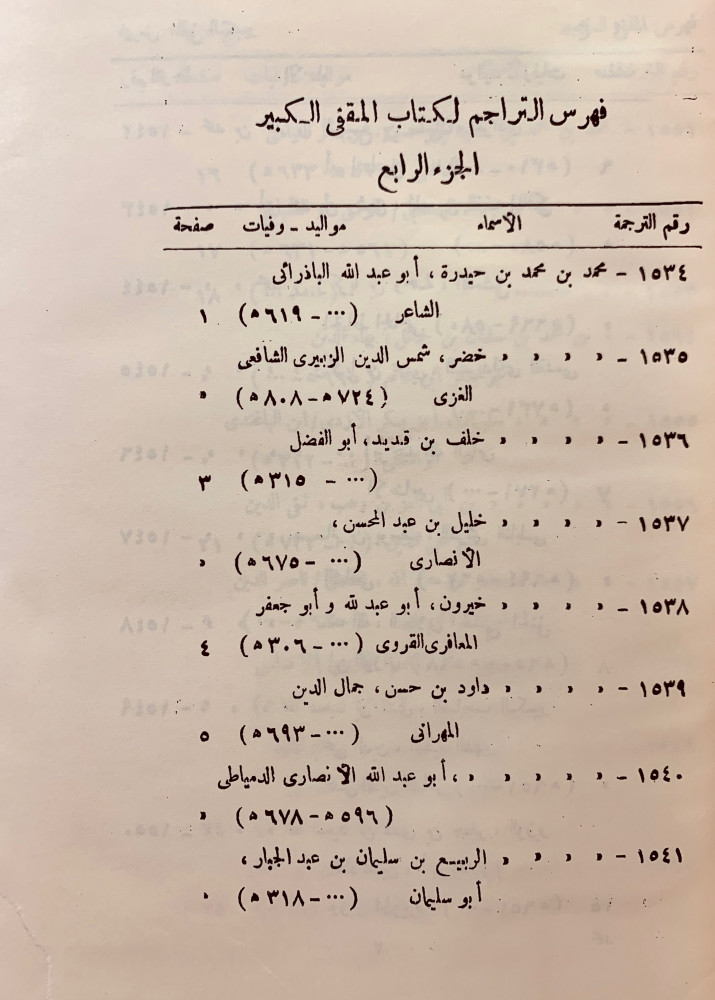 فهرس التراجم لكتاب المقفى الكبير
الجزء الرابع
رقم الترجمة الأسماء مواليد ـ وفيات صفحة
١٥٣٤ – محمد بن محمد بن حيدرة ، أبو عبد الله الباذرائى
الشاعر (٠٠٠ – ٦١٩ھ) ١
١٥٣٥ – » » » » خضر ، شمس الدين الزبيرى الشافعى
الغزى (٧٢٤ھ–٨٠٨ھ) »
١٥٣٦ – » » » » خلف بن قديد، أبو الفضل
(٠٠٠ – ٣١٥ھ) ٣
١٥٣٧ – » » » » خليل بن عبد المحسن ،
الأنصارى (٠٠٠ – ٦٧٥ھ) »
١٥٣٨ – » » » » خيرون، أبو عبد لله و أبو جعفر
المعافرى القروى (٠٠٠ – ٣٠٦ھ) ٤
١٥٣٩ – » » » » داود بن حسن ، جمال الدين
المهرانى (٠٠٠ – ٦٩٣ھ) ٥
١٥٤٠ – » » » » » ، أبو عبد الله الأنصارى الدمياطى
(٥٩٦ھ–٦٧٨ھ) »
١٥٤١ – » » » » الربيع بن سليمان بن عبد الجبار ،
أبو سليمان (٠٠٠ – ٣١٨ھ) »